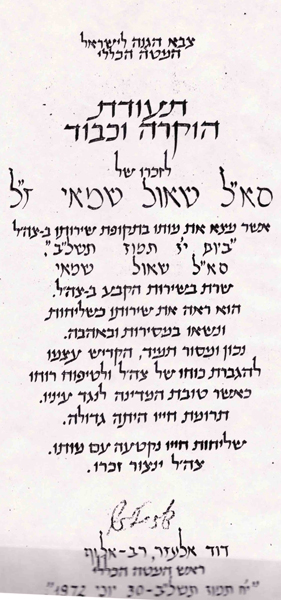 צבא הגנה לישראל
המטה הכללי
תעודת
הוקרה וכבוד
לזכרו של
סא"ל שאול שמאי ז"ל
אשר מצא את מותו בתקופת שירותו ב-צה"ל
"ביום י"ז תמוז תשל"ב".
סא"ל שאול שמאי
שרת בשירות הקבע ב-צה"ל.
הוא ראה את שירותו כשליחות
ונשאו במסירות ובאהבה.
נכון ומסור תמיד, הקדיש עצמו
להגברת כוחו של צה"ל ולטיפוח רוחו
כאשר טובת המדינה לנגד עיניו.
תרומת חייו היתה גדולה.
שליחות חייו נקטעה עם מותו.
צה"ל ינצור זכרו.
דוד אלעזר, רב-אלוף
ראש המטה הכללי
"י"ח תמוז תשל"ב-30 יוני 1972"